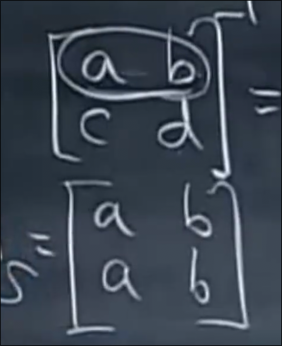 [a b]
[c d] =
= [a b]
[a b]